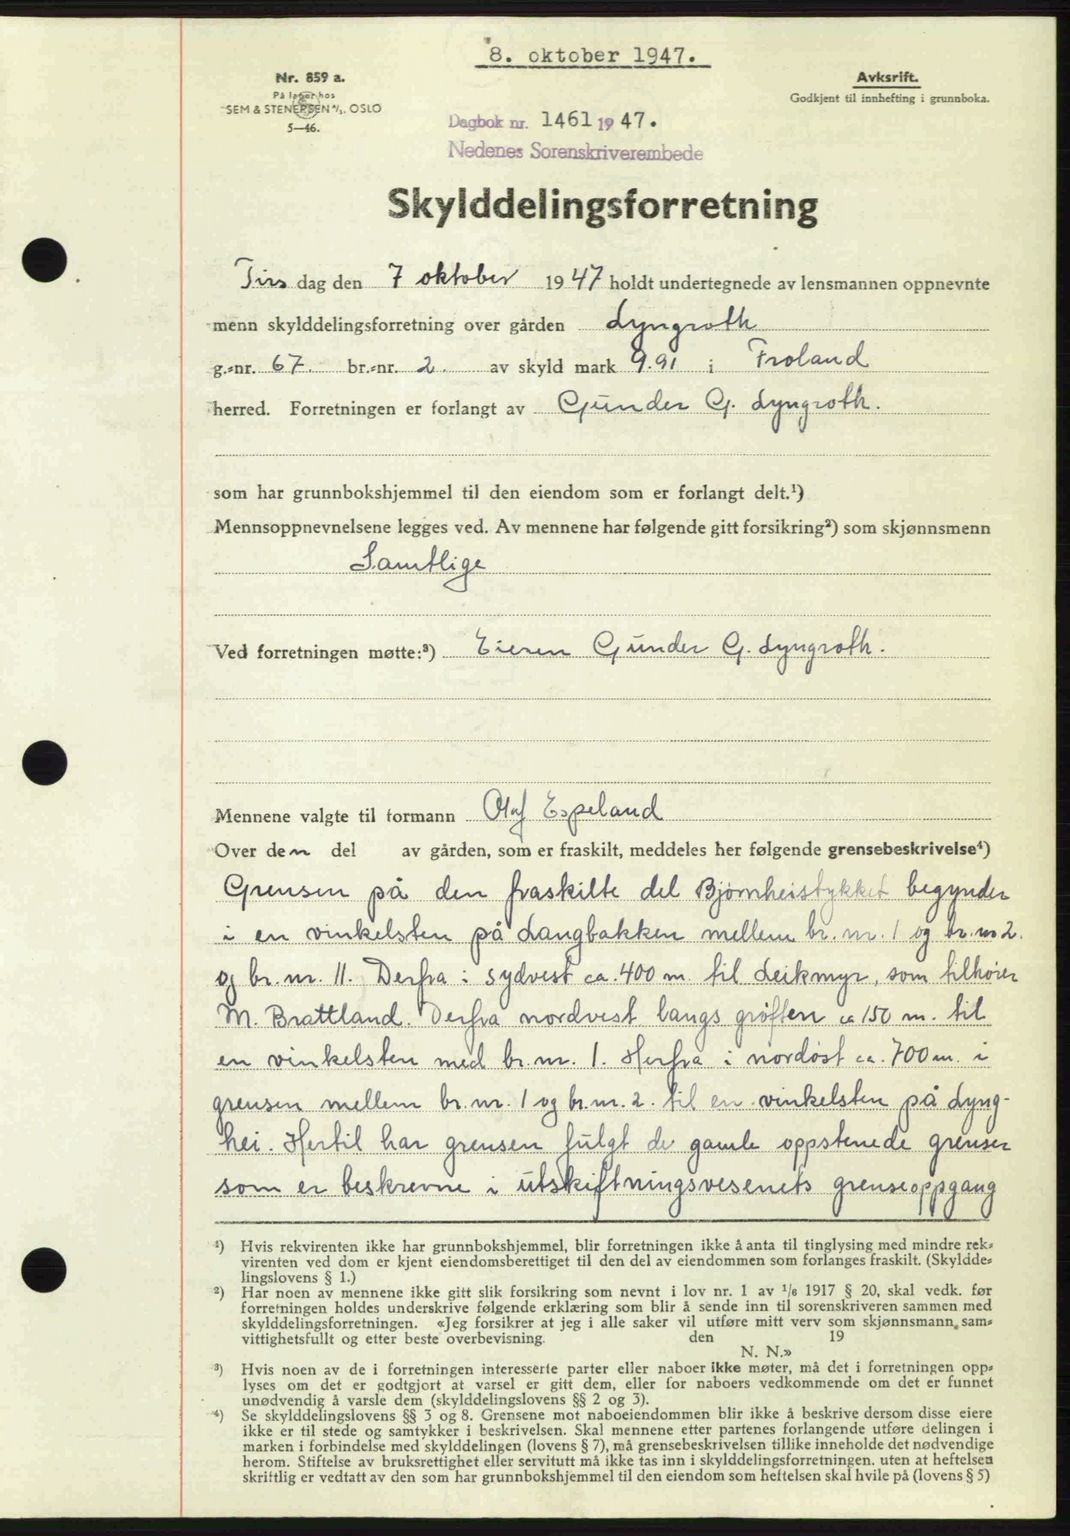 8. oktober 1947.
Nr. 859 a.
På lager hos
SEM & STENERSEN A/S. OSLO
5—46.
Avksrift.
Godkjent til innhefting i grunnboka.
Dagbok nr. 1461 1947.
Nedenes Sorenskriverembede
Skylddelingsforretning
Tirs dag den 7 oktober 1947 holdt undertegnede av lensmannen oppnevnte
menn skylddelingsforretning over gården Lyngroth
g.-nr. 67. br.-nr. 2. av skyld mark 9.91 i Froland
herred. Forretningen er forlangt av Gunder G. Lyngroth.
som har grunnbokshjemmel til den eiendom som er forlangt delt.¹)
Mennsoppnevnelsene legges ved. Av mennene har følgende gitt forsikring²) som skjønnsmenn
Samtlige
Ved forretningen møtte:³) Eieren Gunder G. Lyngroth.
Mennene valgte til formann Olaf Espeland
Over den del av gården, som er fraskilt, meddeles her følgende grensebeskrivelse⁴)
Grensen på den fraskilte del Bjørnheistykket begynder
i en vinkelsten på Langbakken mellem br. nr. 1 og br. nr 2.
og br. nr. 11. Derfra i sydvest ca. 400 m. til Leikmyr, som tilhører
M. Brattland. Derfra nordvest langs grøften ca 150 m. til
en vinkelsten med br. nr. 1. Herfra i nordøst ca. 700 m. i
grensen mellem br. nr. 1 og br. nr. 2. til en vinkelsten på Lyng-
hei. Hertil har grensen fulgt de gamle oppstenede grenser
som er beskrevne i utskiftningsvesenets grenseoppgang
¹) Hvis rekvirenten ikke har grunnbokshjemmel, blir forretningen ikke å anta til tinglysing med mindre rek-
virenten ved dom er kjent eiendomsberettiget til den del av eiendommen som forlanges fraskilt. (Skyldde-
lingslovens § 1.)
²) Har noen av mennene ikke gitt slik forsikring som nevnt i lov nr. 1 av 1/6 1917 § 20, skal vedk. før
forretningen holdes underskrive følgende erklæring som blir å sende inn til sorenskriveren sammen med
skylddelingsforretningen. «Jeg forsikrer at jeg i alle saker vil utføre mitt verv som skjønnsmann sam-
vittighetsfullt og etter beste overbevisning. den 19
N. N.»
³) Hvis noen av de i forretningen interesserte parter eller naboer ikke møter, må det i forretningen opp-
lyses om det er godtgjort at varsel er gitt dem, eller for naboers vedkommende om det er funnet
unødvendig å varsle dem (skylddelingslovens §§ 2 og 3).
⁴) Se skylddelingslovens §§ 3 og 8. Grensene mot naboeiendommen blir ikke å beskrive dersom disse eiere
ikke er til stede og samtykker i beskrivelsen. Skal mennene etter partenes forlangende utføre delingen i
marken i forbindelse med skylddelingen (lovens § 7), må grensebeskrivelsen tillike inneholde det nødvendige
herom. Stiftelse av bruksrettighet eller servitutt må ikke tas inn i skylddelingsforretningen, uten at heftelsen
skriftlig er vedtatt av den som har grunnbokshjemmel til den eiendom som heftelsen skal hvile på (lovens § 5)